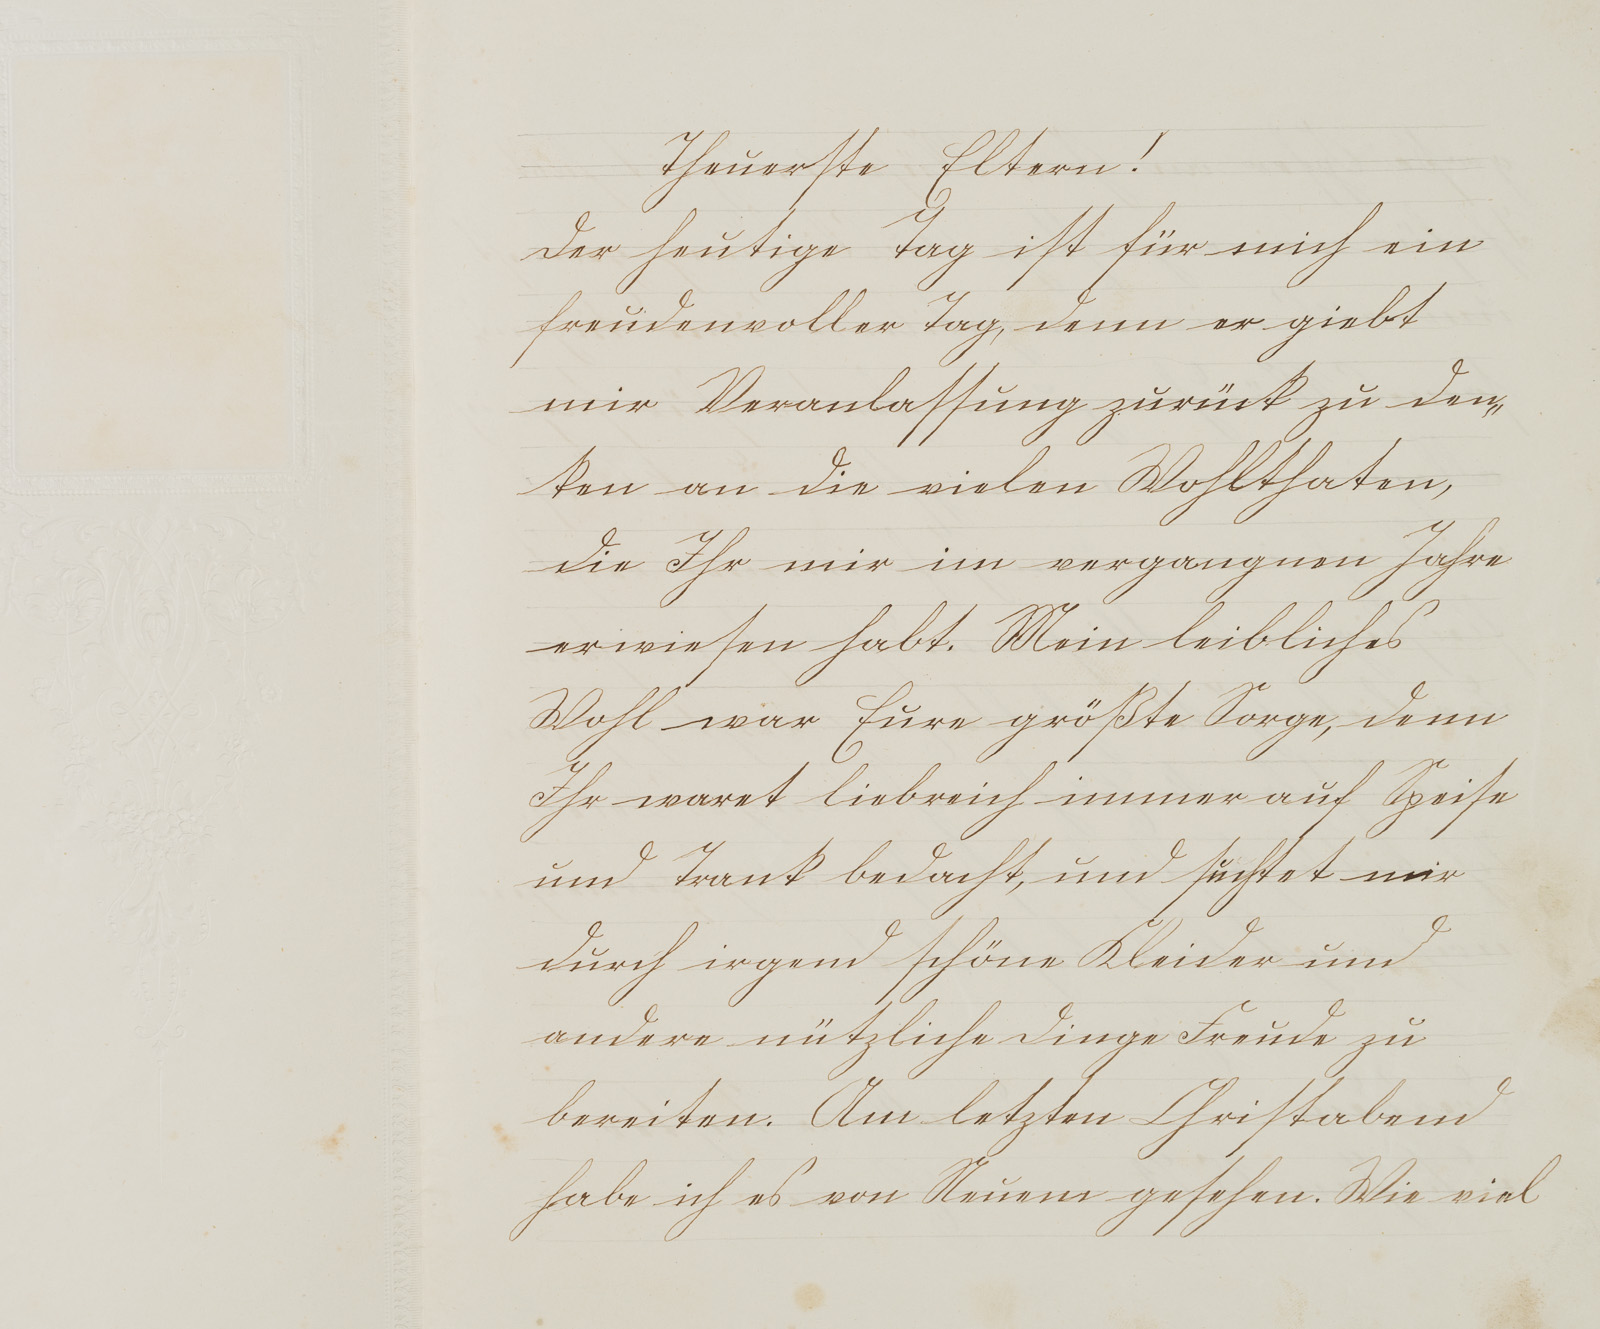 Theuerste Eltern!
Der heutige Tag ist für mich ein
freudenvoller Tag, denn er giebt
mir Veranlassung zurück zu den„
ken an die vielen Wohlthaten,
die Ihr mir im vergangnen Jahre
erwiesen habt. Mein leibliches
Wohl war Eure größte Sorge, denn
Ihr waret liebreich immer auf Speise
und Trank bedacht, und suchtet mir
durch irgend schöne Kleider und
andere nützliche Dinge Freude zu
bereiten. Am letzten Christabend
habe ich es von Neuem gesehen. Wie viel